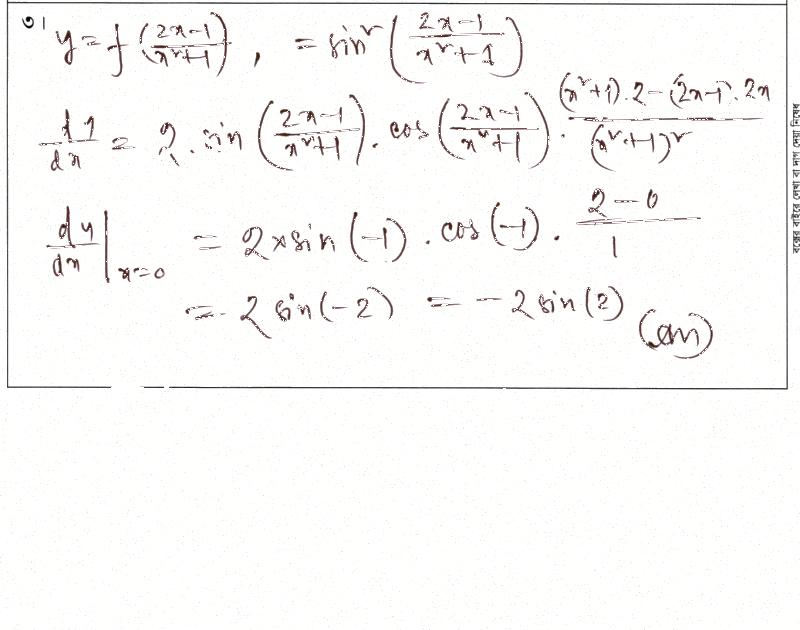 ৩।
y = f((2x-1)/(x²+1)), = sin²((2x-1)/(x²+1))
dy/dx = 2. sin((2x-1)/(x²+1)). cos((2x-1)/(x²+1)). ((x²+1).2-(2x-1).2x)/(x²+1)²
dy/dx|x=0 = 2×sin(-1). cos(-1). (2-0)/1
= 2 sin(-2) = -2 sin(2) (Am)
বক্সের বাইরে লেখা বা দাগ দেয়া নিষেধ